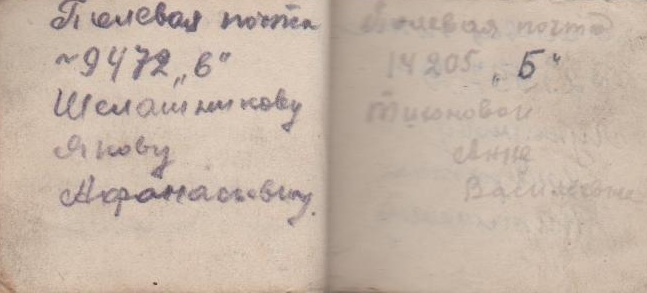 Полевая почта
~9472 „в"
Шелашникову
Якову
Афанасьевичу.
Полевая почта
14205 „Б"
Тихоновой
Анне
Васильевне